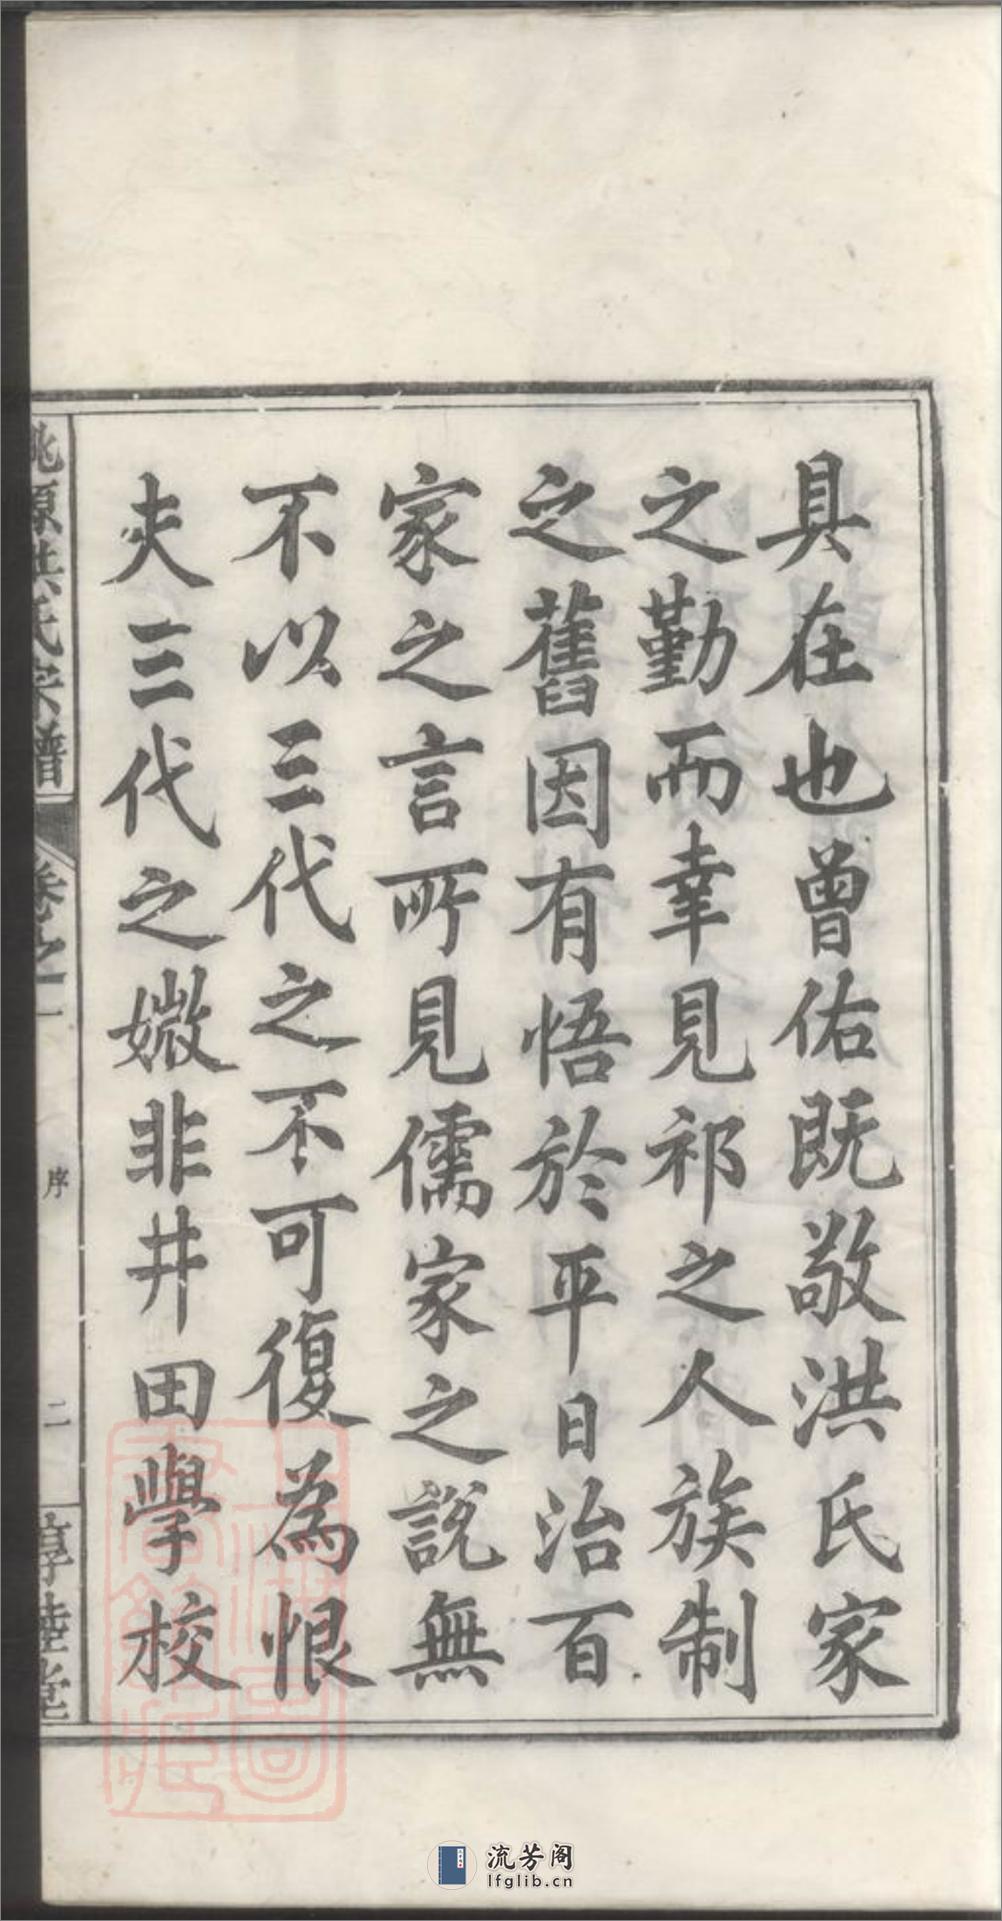 具在也曾佑既敬洪氏家
之勤而幸見祁之人族制
之舊因有悟於平日治百
家之言所見儒家之說無
不以三代之不可復為恨
夫三代之媺非井田學校
桃源洪氏宗譜
卷之一
序
二
惇睦堂
流芳阁
lfglib.cn